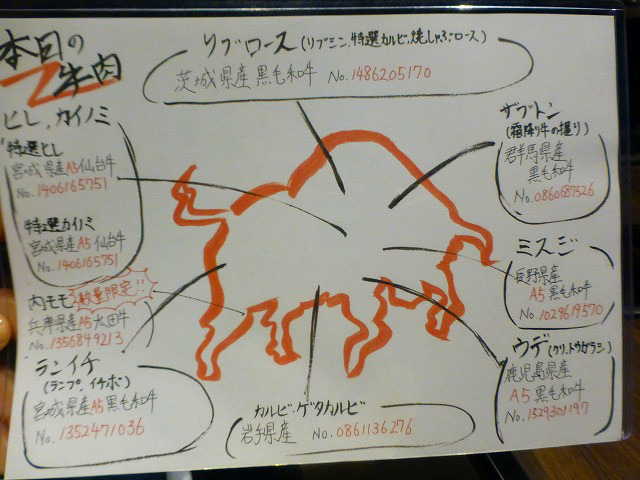 本日の
牛肉
リブロース(リブシン、特選カルビ、焼しゃぶロース)
茨城県産 黒毛和牛 No.1486205170
ヒレ、カイノミ
特選ヒレ
宮城県産A5仙台牛
No.1406165751
特選カイノミ
宮城県産A5仙台牛
No.1406165751
内モモ 数量限定!!
兵庫県産A5太田牛
No.1356849213
ランイチ
(ランプ、イチボ)
宮城県産A5黒毛和牛
No.1352471036
カルビ、ゲタカルビ
岩手県産 No.0861136276
ザブトン
(霜降り牛の握り)
群馬県産
黒毛和牛
No.0860687526
ミスジ
長野県産
A5黒毛和牛
No.1029619570
ウデ(クリ、トウガラシ)
鹿児島県産
A5黒毛和牛
No.1529301197